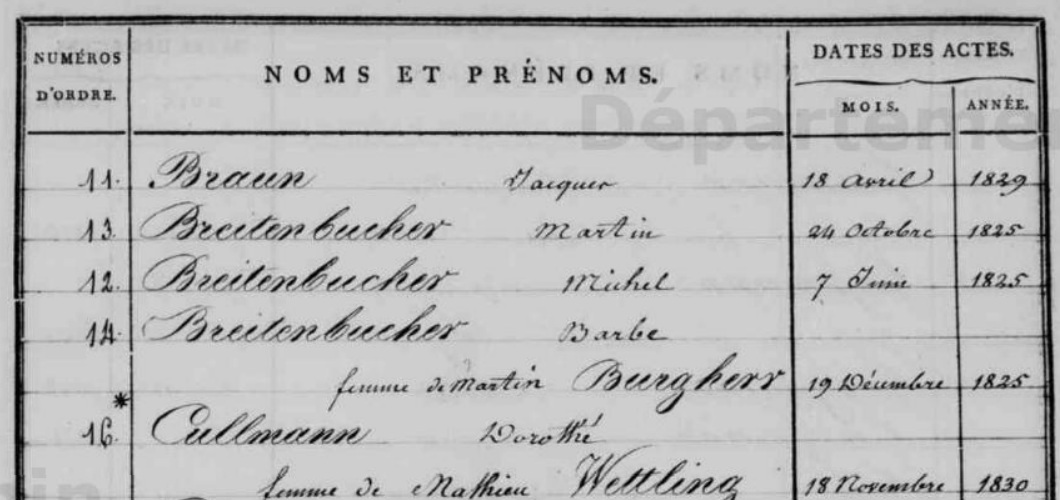 NUMÉROS D'ORDRE. NOMS ET PRÉNOMS. DATES DES ACTES.
MOIS. ANNÉE.
Départemen
11. Braun Jacques 18 avril 1829
13. Breitenbucher Martin 24 Octobre 1825
12. Breitenbucher Michel 7 Juin 1825
14. Breitenbucher Barbe
femme de Martin Burgherr 19 Décembre 1825
* 16. Cullmann Dorothé
femme de Mathieu Wettling 18 Novembre 1830